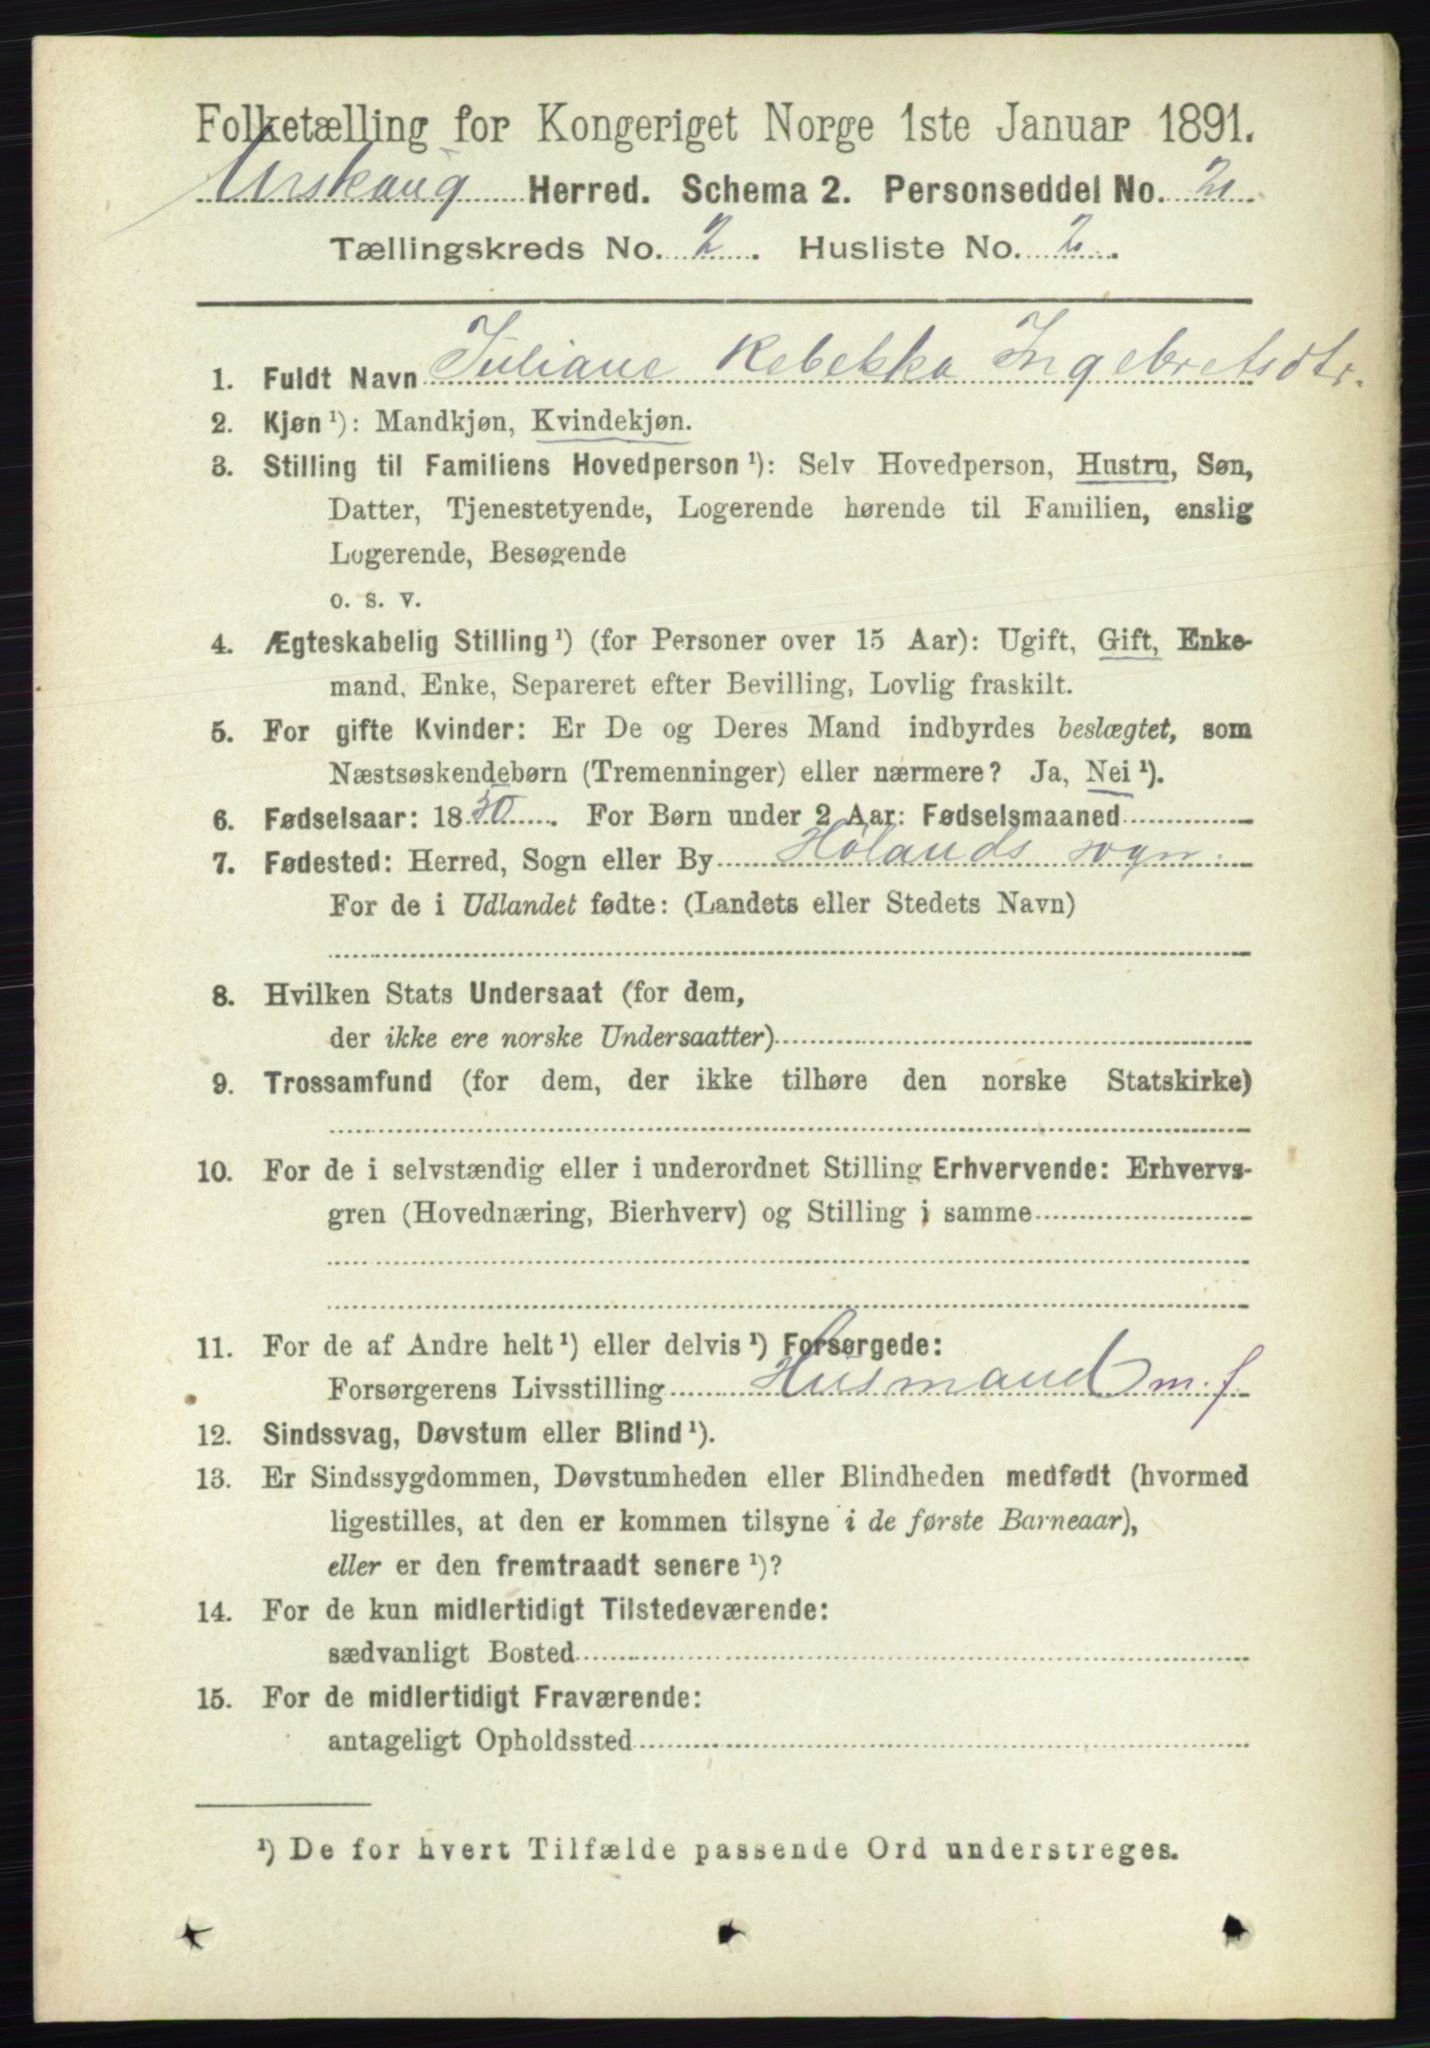 Folketælling for Kongeriget Norge 1ste Januar 1891.
Urskoug Herred. Schema 2. Personseddel No. 2
Tællingskreds No. 2. Husliste No. 2.
1. Fuldt Navn Juliane Rebekka Ingebretsdtr.
2. Kjøn ¹): Mandkjøn, Kvindekjøn.
3. Stilling til Familiens Hovedperson ¹): Selv Hovedperson, Hustru, Søn,
Datter, Tjenestetyende, Logerende hørende til Familien, enslig
Logerende, Besøgende
o. s. v.
4. Ægteskabelig Stilling ¹) (for Personer over 15 Aar): Ugift, Gift, Enke-
mand, Enke, Separeret efter Bevilling, Lovlig fraskilt.
5. For gifte Kvinder: Er De og Deres Mand indbyrdes beslægtet, som
Næstsøskendebørn (Tremenninger) eller nærmere? Ja, Nei ¹).
6. Fødselsaar: 1830. For Børn under 2 Aar: Fødselsmaaned
7. Fødested: Herred, Sogn eller By Hølands sogn.
For de i Udlandet fødte: (Landets eller Stedets Navn)
8. Hvilken Stats Undersaat (for dem,
der ikke ere norske Undersaatter)
9. Trossamfund (for dem, der ikke tilhøre den norske Statskirke)
10. For de i selvstændig eller i underordnet Stilling Erhvervende: Erhvervs-
gren (Hovednæring, Bierhverv) og Stilling i samme
11. For de af Andre helt ¹) eller delvis ¹) Forsørgede:
Forsørgerens Livsstilling Husmand m. f.
12. Sindssvag, Døvstum eller Blind ¹).
13. Er Sindssygdommen, Døvstumheden eller Blindheden medfødt (hvormed
ligestilles, at den er kommen tilsyne i de første Barneaar),
eller er den fremtraadt senere ¹)?
14. For de kun midlertidigt Tilstedeværende:
sædvanligt Bosted
15. For de midlertidigt Fraværende:
antageligt Opholdssted
¹) De for hvert Tilfælde passende Ord understreges.